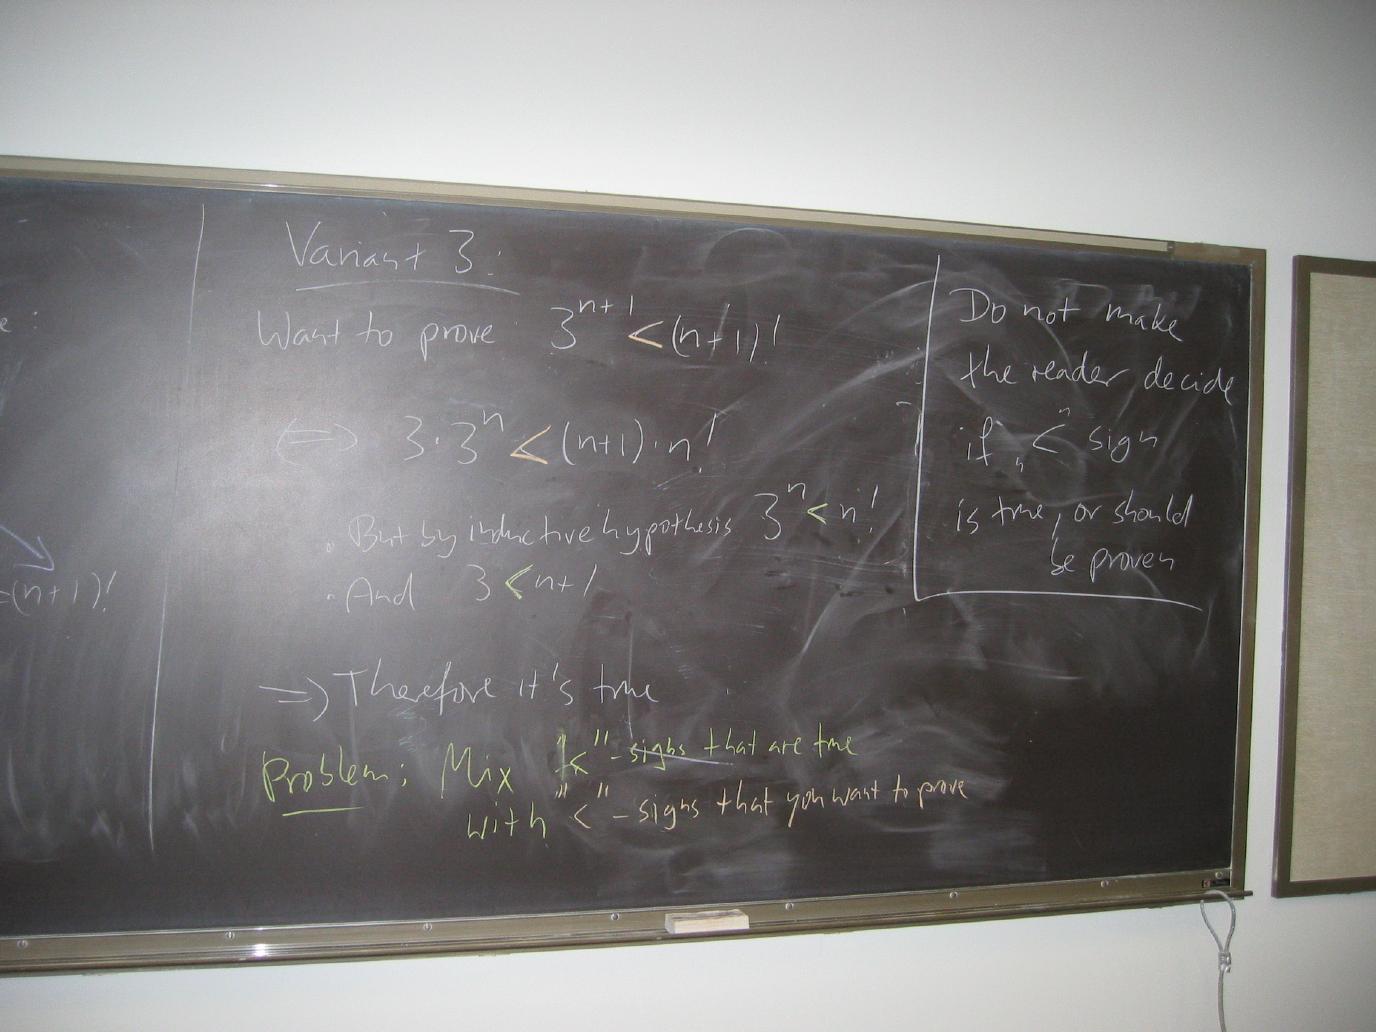 e:
=(n+1)!
Variant 3:
Want to prove 3^{n+1} < (n+1)!
(=) 3·3^n < (n+1)·n!
. But by inductive hypothesis 3^n < n!
. And 3 < n+1
=) Therefore it's true
Problem: Mix "<"-signs that are true
with "<"-signs that you want to prove
Do not make
the reader decide
if „<“ sign
is true, or should
be proven